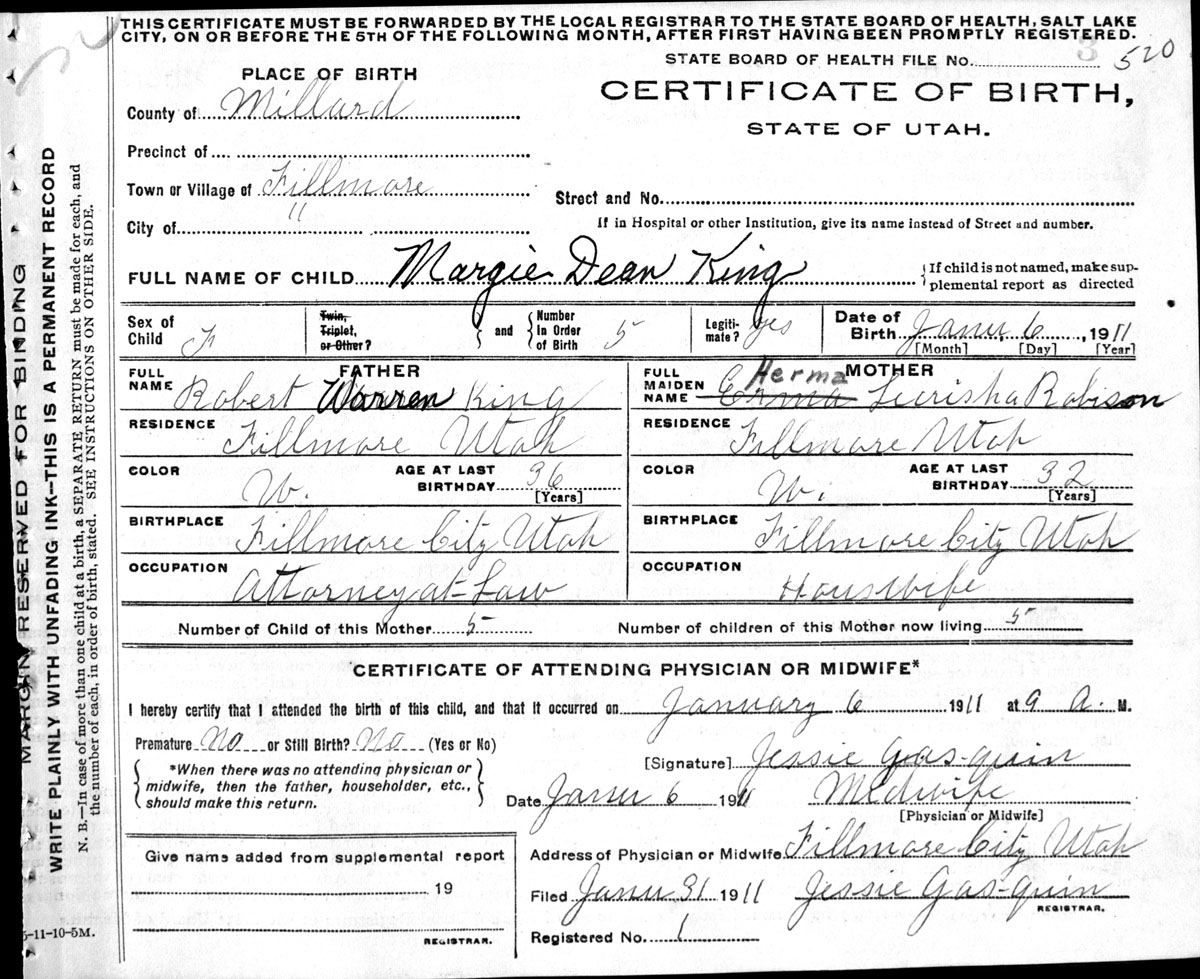 THIS CERTIFICATE MUST BE FORWARDED BY THE LOCAL REGISTRAR TO THE STATE BOARD OF HEALTH, SALT LAKE
CITY, ON OR BEFORE THE 5TH OF THE FOLLOWING MONTH, AFTER FIRST HAVING BEEN PROMPTLY REGISTERED.
3
STATE BOARD OF HEALTH FILE No. 520
PLACE OF BIRTH
CERTIFICATE OF BIRTH,
STATE OF UTAH.
County of Millard
Precinct of
Town or Village of Fillmore
Street and No.
City of "
If in Hospital or other Institution, give its name instead of Street and number.
FULL NAME OF CHILD Margie Dean King
{If child is not named, make sup-
plemental report as directed
Sex of Child F
Twin, Triplet, or Other?
and
Number In Order of Birth 5
Legiti-mate? yes
Date of Birth Janu, 6, 1911
[Month] [Day] [Year]
FATHER
FULL NAME Robert Warren King
MOTHER
FULL MAIDEN NAME Erma Herma Lucrisha Robison
RESIDENCE Fillmore Utah
RESIDENCE Fillmore Utah
COLOR W.
AGE AT LAST BIRTHDAY 36 [Years]
COLOR W.
AGE AT LAST BIRTHDAY 32 [Years]
BIRTHPLACE Fillmore City Utah
BIRTHPLACE Fillmore City Utah
OCCUPATION Attorney at-Law
OCCUPATION Houswife
Number of Child of this Mother 5
Number of children of this Mother now living 5
CERTIFICATE OF ATTENDING PHYSICIAN OR MIDWIFE*
I hereby certify that I attended the birth of this child, and that it occurred on January 6 1911 at 9 A. M.
Premature No or Still Birth? No (Yes or No)
{*When there was no attending physician or
midwife, then the father, householder, etc.,
should make this return.}
[Signature] Jessie Gas-quin
Date Janu 6 1911 Midwife
[Physician or Midwife]
Give name added from supplemental report
19
REGISTRAR.
Address of Physician or Midwife Fillmore City Utah
Filed Janu 31 1911 Jessie Gas-quin
REGISTRAR.
Registered No. 1
5-11-10-5M.
MARGIN RESERVED FOR BINDING
WRITE PLAINLY WITH UNFADING INK—THIS IS A PERMANENT RECORD
N. B.—In case of more than one child at a birth, a SEPARATE RETURN must be made for each, and
the number of each, in order of birth, stated. SEE INSTRUCTIONS ON OTHER SIDE.